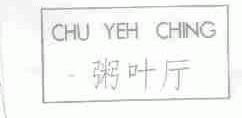 CHU YEH CHING
粥叶厅